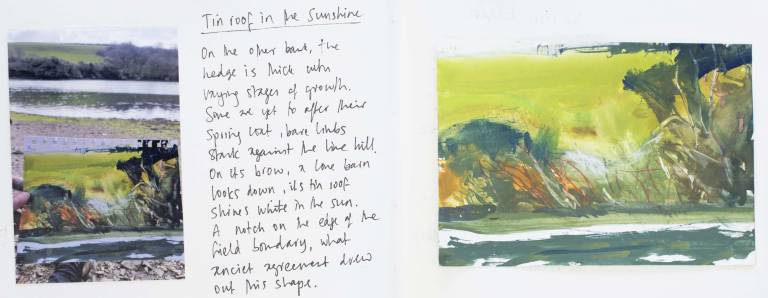 Tin roof in the Sunshine
On the other bank, the
hedge is thick with
varying stages of growth.
Some are yet to after their
spring coat, bare limbs
stark against the lime hill.
On its brow, a lone barn
looks down, its tin roof
shines white in the sun.
A notch on the edge of the
field boundary, what
ancient agreement drew
out this shape.